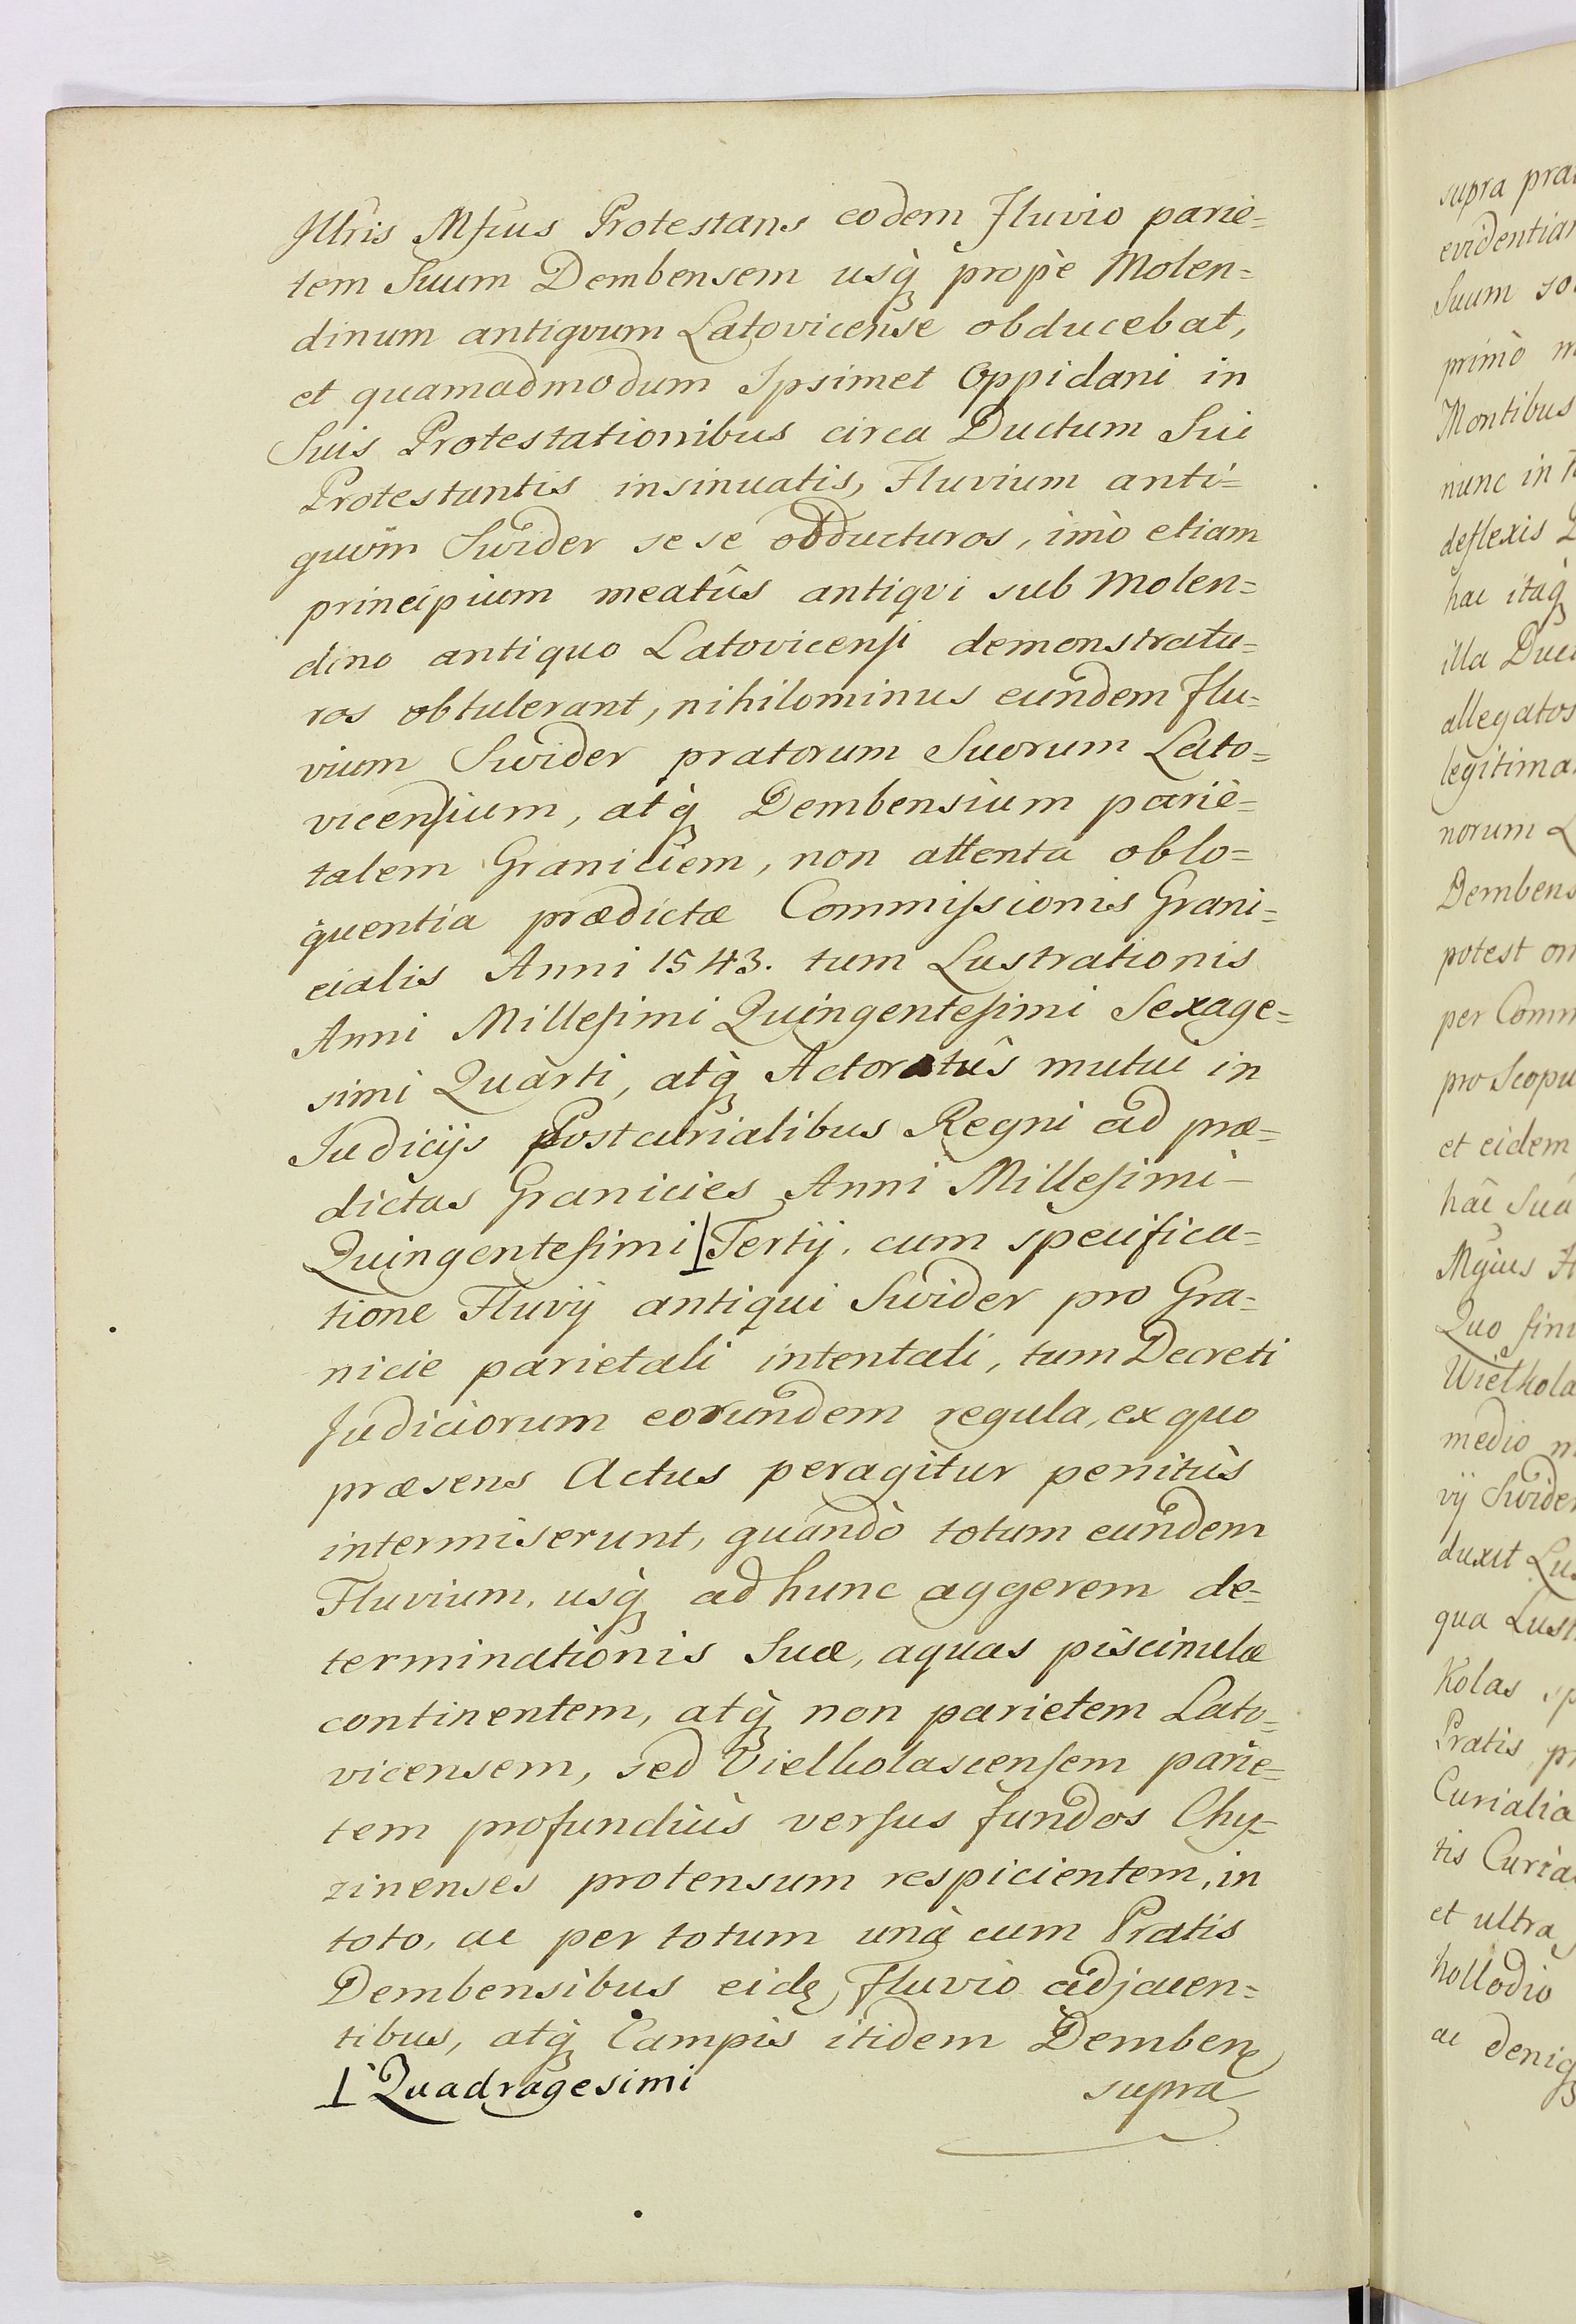 Jllris Mfius Protestans eodem Fluvio parie=
tem Suum Dembensem usq́ propè Molen=
dinum antiqvum Latovicense obducebat,
et quamadmodum Ipsimet Oppidani in
Suis Protestationibus circa Ductum Sui
Protestantis insinuatis, Fluvium anti=
quum Swider se se obducturos, imò etiam
principium meatûs antiqvi sub Molen=
dino antiquo Latovicensi demonstratu=
ros obtulerant, nihilominus eundem Flu=
vium Swider pratorum Suorum Lato=
vicensium, atq́ Dembensium parie=
talem Graniciem, non attenta oblo=
quentia prædictæ Commissionis Grani=
cialis Anni 1543. tum Lustrationis
Anni Millesimi Quingentesimi Sexage=
simi Quarti, atq́ Actoratûs mutui in
Judicijs Postcurialibus Regni ad præ=
dictas Granicies Anni Millesimi-
Quingentesimi ⊥ Tertij. cum specifica=
tione Fluvij antiqui Swider pro Gra=
nicie parietali intentati, tum Decreti
Judiciorum eorundem regula, ex quo
præsens Actus peragitur penitùs
intermiserunt, quandò totum eundem
Fluvium, usq́ ad hunc aggerem de=
terminationis Suæ, aquas piscinulæ
continentem, atq́ non parietem Lato=
vicensem, sed Vielkolascensem parie=
tem profundiùs versus fundos Chy=
zinenses protensum respicientem, in
toto, ac per totum unà cum Pratis
Dembensibus eidę Fluvio adjacen=
tibus, atq́ Campis itidem Demben
⊥ Quadragesimi supra
supra
evidentiam
Suum
primò
Montibus
nunc in
deflexis
hac itaq́
illa
allegatos
legitima
norum
Dembens
potest
per
pro
et eidem
hac Sua
Mgius
Quo
Wielkola
medio
vij Swider
duxit
qua
Kolas
Pratis
Curialia
tis Curia
et ultra
hollodio
ac deniq́